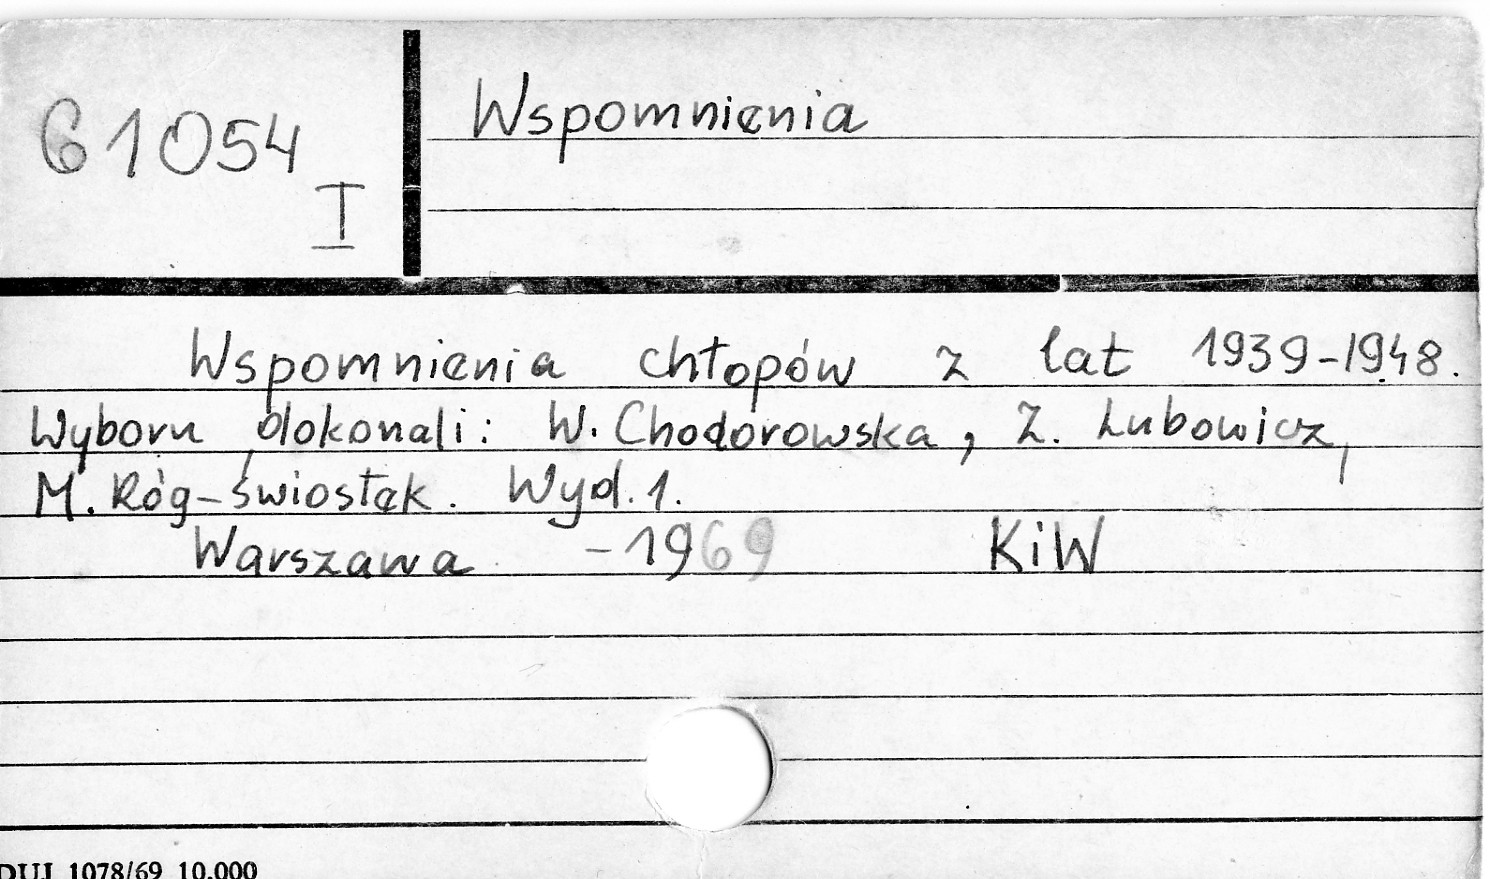 61054
I
Wspomnienia
Wspomnienia chłopów z lat 1939-1948.
Wyboru dokonali: W. Chodorowska, Z. Lubowicz,
M. Róg-Świostek. Wyd. 1.
Warszawa - 1969 KiW
DUJ 1078/69 10.000